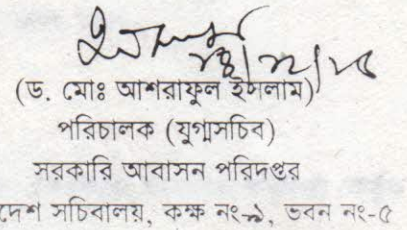 ২৪/১২/২৫
(ড. মোঃ আশরাফুল ইসলাম)
পরিচালক (যুগ্মসচিব)
সরকারি আবাসন পরিদপ্তর
দেশ সচিবালয়, কক্ষ নং-৯, ভবন নং-৫